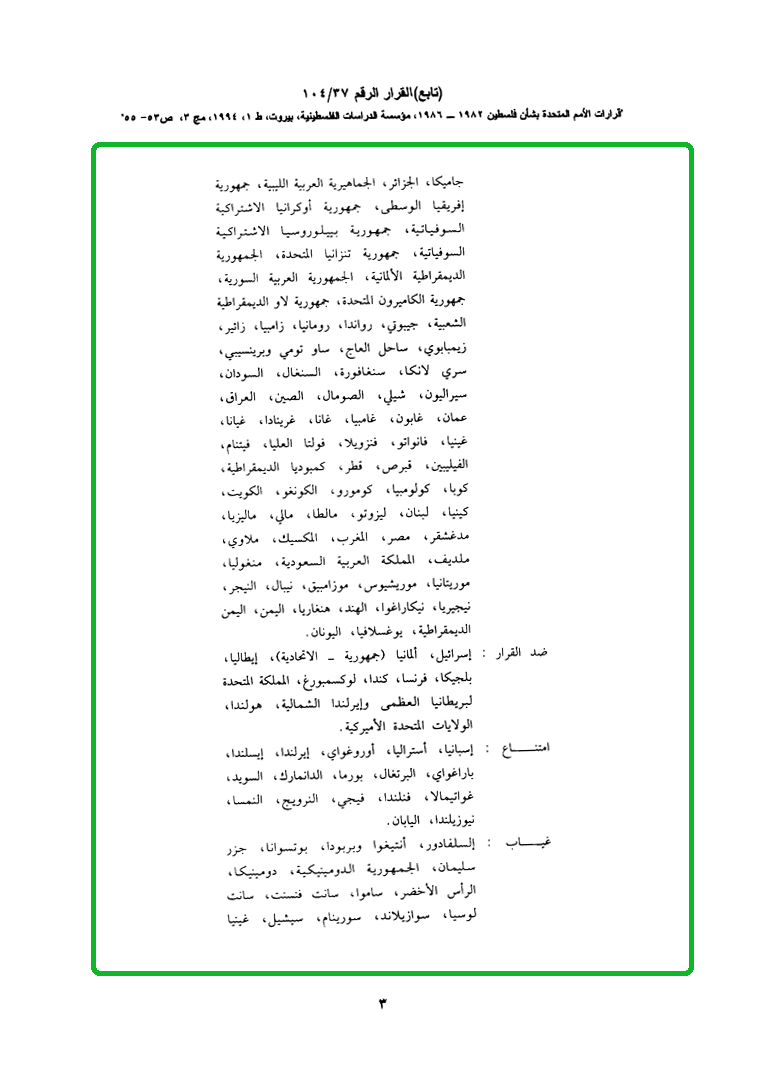 (تابع)القرار الرقم ١٠٤/٣٧
"قرارات الأمم المتحدة بشأن فلسطين ١٩٨٢ ــ ١٩٨٦، مؤسسة الدراسات الفلسطينية، بيروت، ط ١، ١٩٩٤، مج ٣، ص٥٣- ٥٥"
جاميكا، الجزائر، الجماهيرية العربية الليبية، جمهورية
إفريقيا الوسطى، جمهورية أوكرانيا الاشتراكية
السوفياتية، جمهورية بييلوروسيا الاشتراكية
السوفياتية، جمهورية تنزانيا المتحدة، الجمهورية
الديمقراطية الألمانية، الجمهورية العربية السورية،
جمهورية الكاميرون المتحدة، جمهورية لاو الديمقراطية
الشعبية، جيبوتي، رواندا، رومانيا، زامبيا، زائير،
زيمبابوي، ساحل العاج، ساو تومي وبرينسيبي،
سري لانكا، سنغافورة، السنغال، السودان،
سيراليون، شيلي، الصومال، الصين، العراق،
عمان، غابون، غامبيا، غانا، غرينادا، غيانا،
غينيا، فانواتو، فنزويلا، فولتا العليا، فيتنام،
الفيليبين، قبرص، قطر، كمبوديا الديمقراطية،
كوبا، كولومبيا، كومورو، الكونغو، الكويت،
كينيا، لبنان، ليزوتو، مالطا، مالي، ماليزيا،
مدغشقر، مصر، المغرب، المكسيك، ملاوي،
ملديف، المملكة العربية السعودية، منغوليا،
موريتانيا، موريشيوس، موزامبيق، نيبال، النيجر،
نيجيريا، نيكاراغوا، الهند، هنغاريا، اليمن، اليمن
الديمقراطية، يوغسلافيا، اليونان.
ضد القرار : إسرائيل، ألمانيا (جمهورية ــ الاتحادية)، إيطاليا،
بلجيكا، فرنسا، كندا، لوكسمبورغ، المملكة المتحدة
لبريطانيا العظمى وإيرلندا الشمالية، هولندا،
الولايات المتحدة الأميركية.
امتنــــاع : إسبانيا، أستراليا، أوروغواي، إيرلندا، إيسلندا،
باراغواي، البرتغال، بورما، الدانمارك، السويد،
غواتيمالا، فنلندا، فيجي، النرويج، النمسا،
نيوزيلندا، اليابان.
غيــــاب : إلسلفادور، أنتيغوا وبربودا، بوتسوانا، جزر
سليمان، الجمهورية الدومينيكية، دومينيكا،
الرأس الأخضر، ساموا، سانت فنسنت، سانت
لوسيا، سوازيلاند، سورينام، سيشيل، غينيا
٣